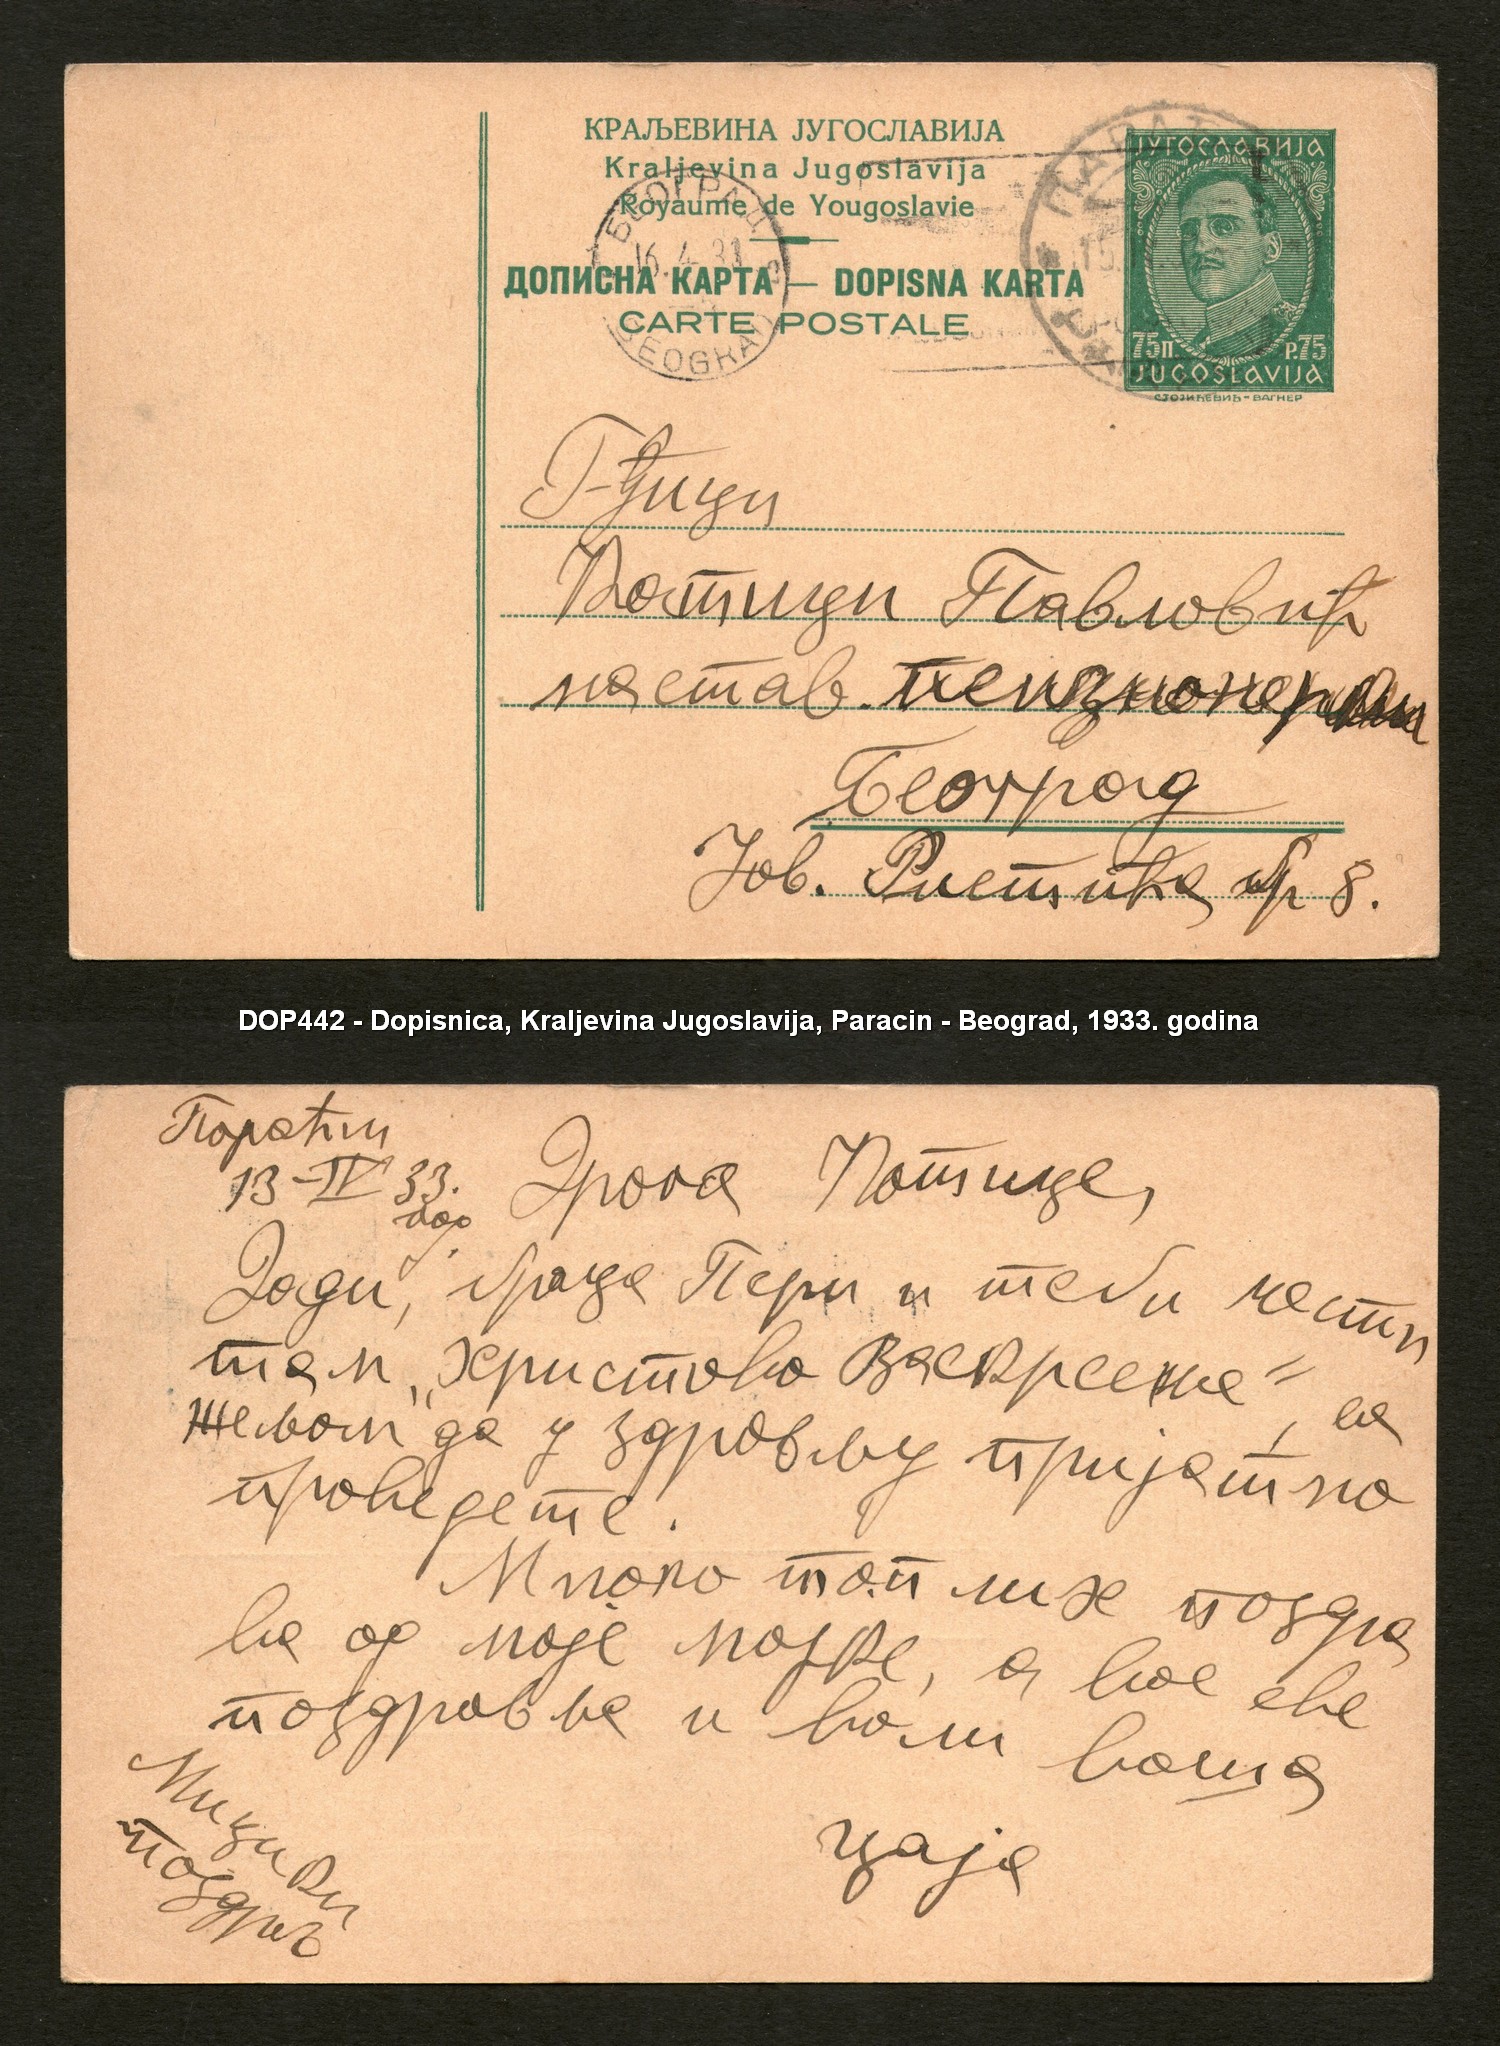 КРАЉЕВИНА ЈУГОСЛАВИЈА
Kraljevina Jugoslavija
Royaume de Yougoslavie
ДОПИСНА КАРТА — DOPISNA KARTA
CARTE POSTALE
БЕОГРАД
16.4.33
BEOGRAD
ЈУГОСЛАВИЈА
75п. P.75
JUGOSLAVIJA
СТОЈИЋЕВИЋ-ВАГНЕР
Г-ђици
Котици Павловић
настав. пензионер
Београд
Јов. Ристића бр 8.
DOP442 - Dopisnica, Kraljevina Jugoslavija, Paracin - Beograd, 1933. godina
Параћин
13-IV 33.
Драга Котице,
Зади, браца Пери и теби чести
там „Христово Васкрсење“, са
жељом да у здрављу пријатно
проведете.
Много топлих поздра
ва од моје мајке, а вас све
поздравља и воли ваша
Цаја
Мицики
поздрав